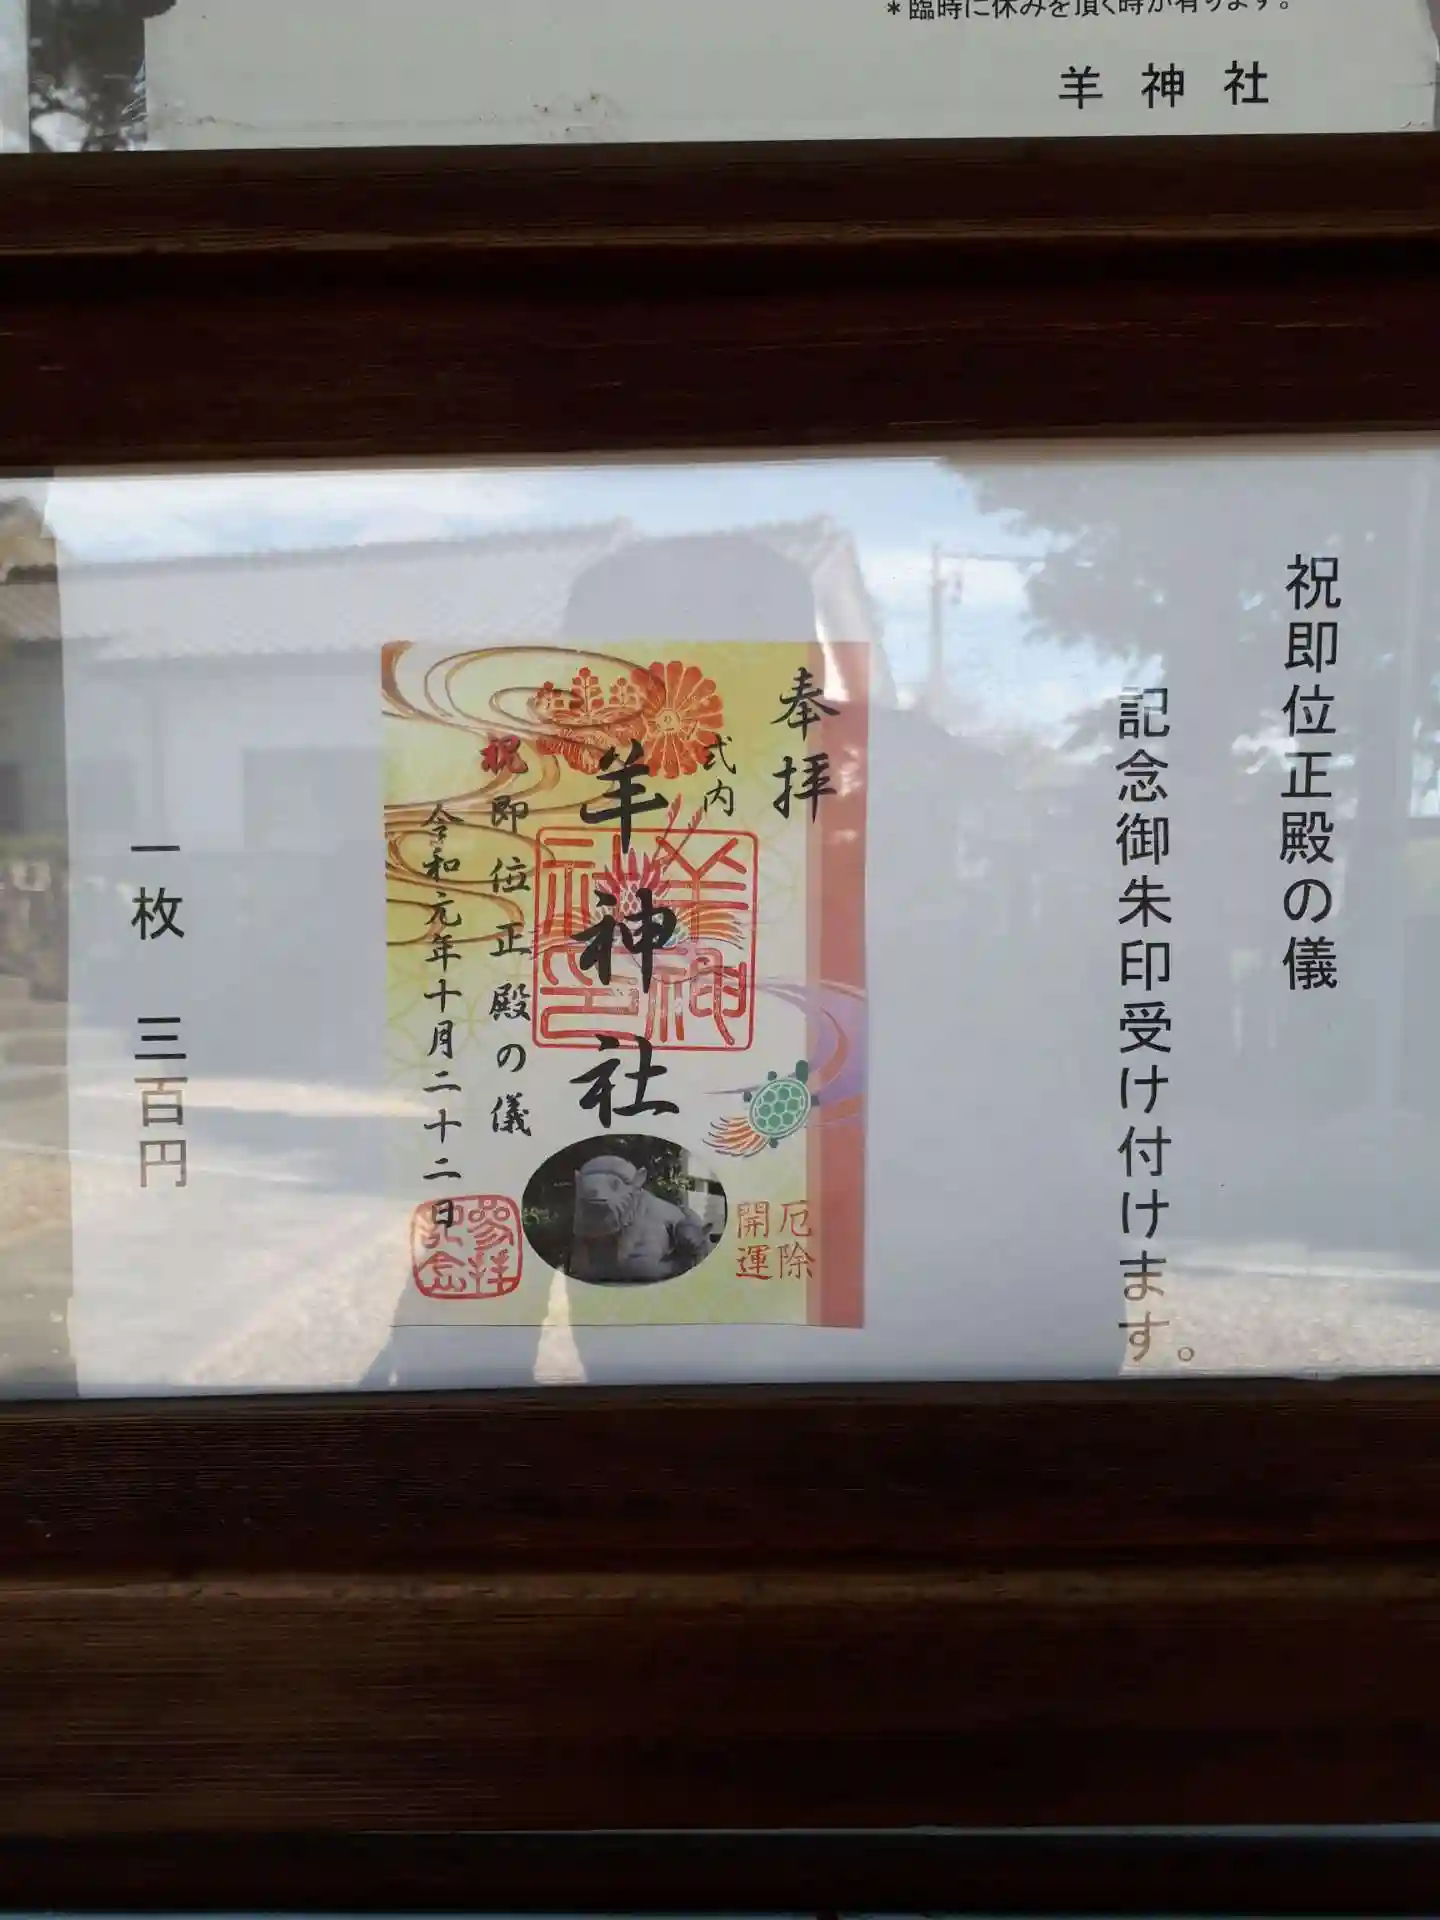 *臨時に休みを頂く時が有ります。
羊神社
祝即位正殿の儀
記念御朱印受け付けます。
奉拝
式内
羊神社
祝即位正殿の儀
令和元年十月二十二日
羊神社印
厄除
開運
参拝
記念
一枚 三百円